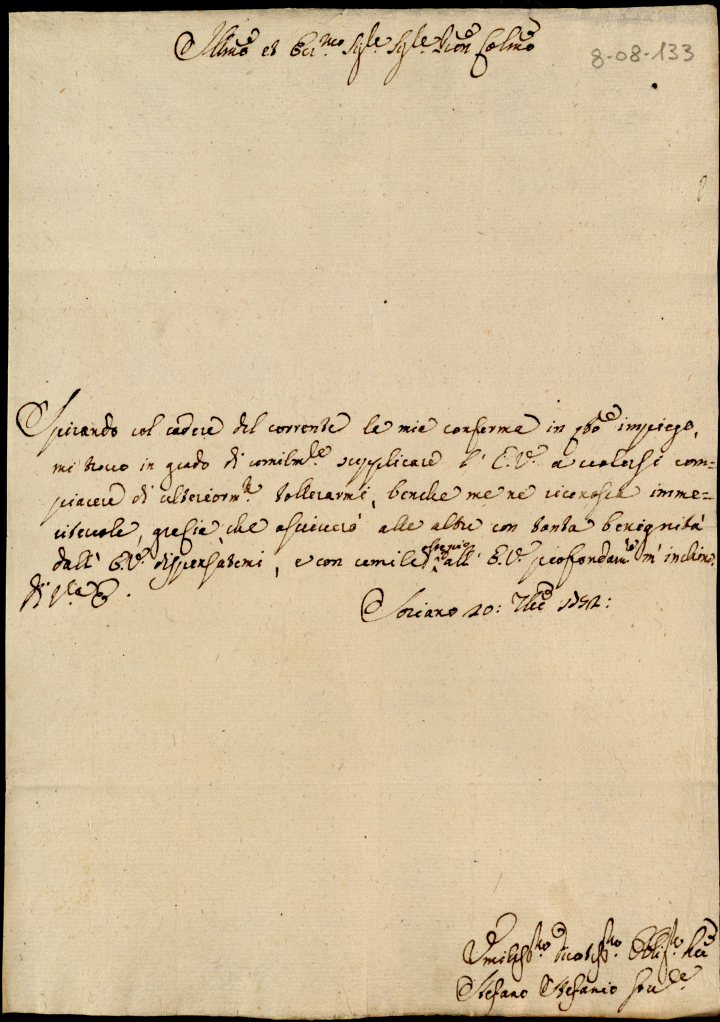 Illmo et Eccmo Sigre Sigre Pron Colmo
8-08-133
Spirando col cadere del corrente la mia conferma in qsto impiego,
mi trovo in grado di umilmte supplicare l'E.V. a volersi com=
piacere di ulteriormte tollerarmi, benche me ne riconosca imme=
ritevole, grazia, che ascriverò alle altre con tanta benignità
dall'E.V. dispensatemi, e con umile ossequio all'E.V. profondamte m'inchino.
Di V.ra E.
Soriano 20: 7bre
Umilissmo Devotissmo Obligmo
Stefano Stefanio